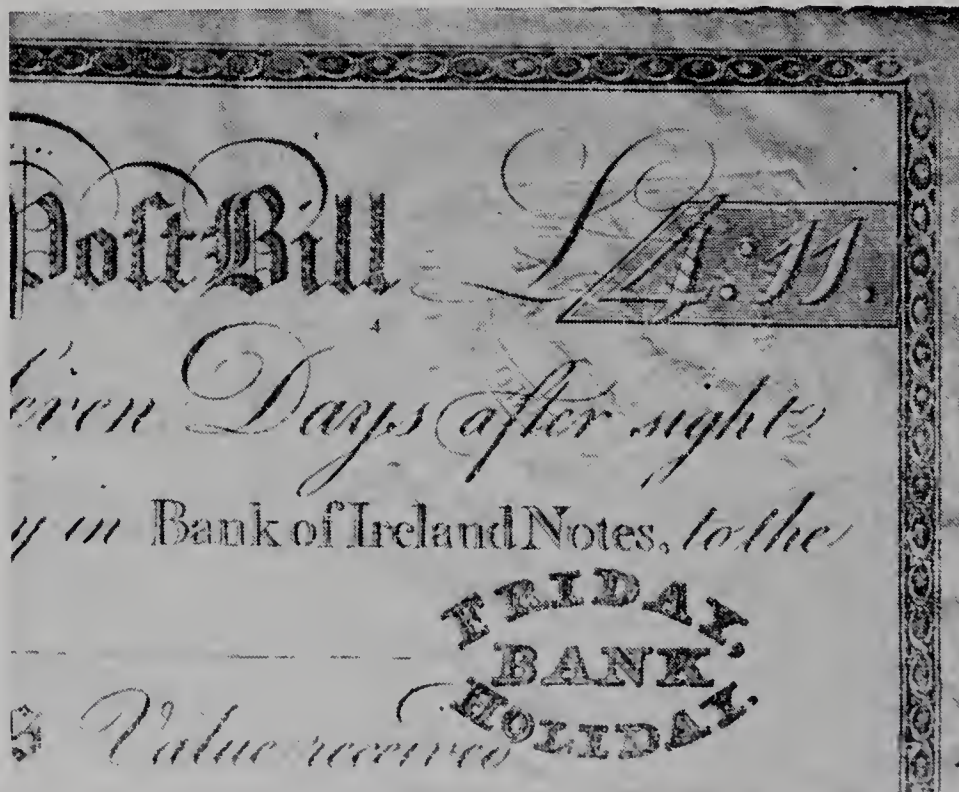 Poſt Bill £4:11.
4
ſeven Days after sight
y in Bank of Ireland Notes, to the
FRIDAY,
BANK
HOLIDAY.
s Value received